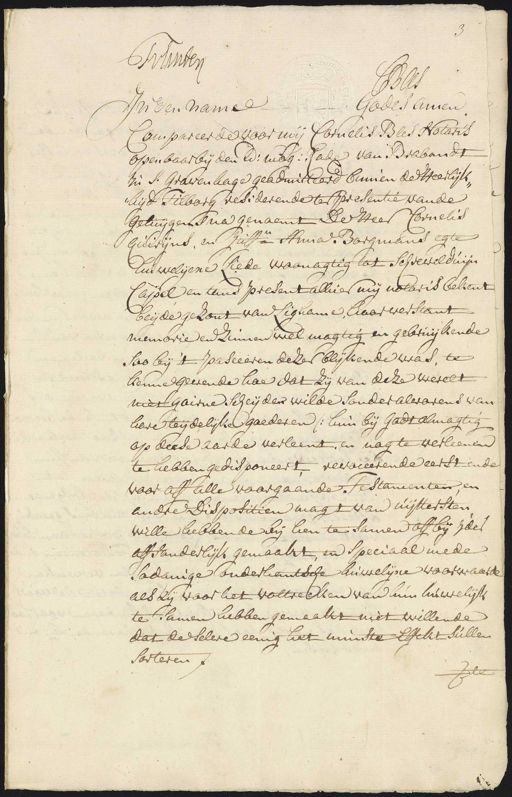 3
Blas
In den name Godes Amen
Compareerde voor mij Cornelis Blas Notaris
openbaar bij den Ed: mog: Rade van Brabandt
in S. Gravenhage geadmitteerd binnen de Heerlijk„
heijd Tilborg residerende ter presentie van de
Getuijgen Ina genaemt De Heer Cornelis
en Juffr. Anna Borgmans egte
huwelijene Liede woonagtig tot
Cappel en tans present alhier mij notaris bekent
beijde gesont van Lighame haar verstant
memorie en zinnen wel magtig en gebruijkende
soo bij 't passeeren deser blijkende was, te
kenne gevende hoe dat zij van dese werelt
niet gairne scheijden wilde sonder alvorens van
hare tijdelijke goederen: hun bij Godt almagtig
op dese aarde verleent, en nog te verlienen
te hebben gedisponeert, revoceerende eerst ende
voor aff alle voorgaande Testamenten, en
andre dispositien magt van uijttersten
wille hebbende bij hen te samen off bij ijder
affsonderlijk gemaakt, en speciaal mede
sodanige huwelijxe voorwaarde
als zij voor het voltrecken van hun huwelijk
te samen hebben gemaakt niet willende
dat deselve eenig het minste effect sullen
sorteren,